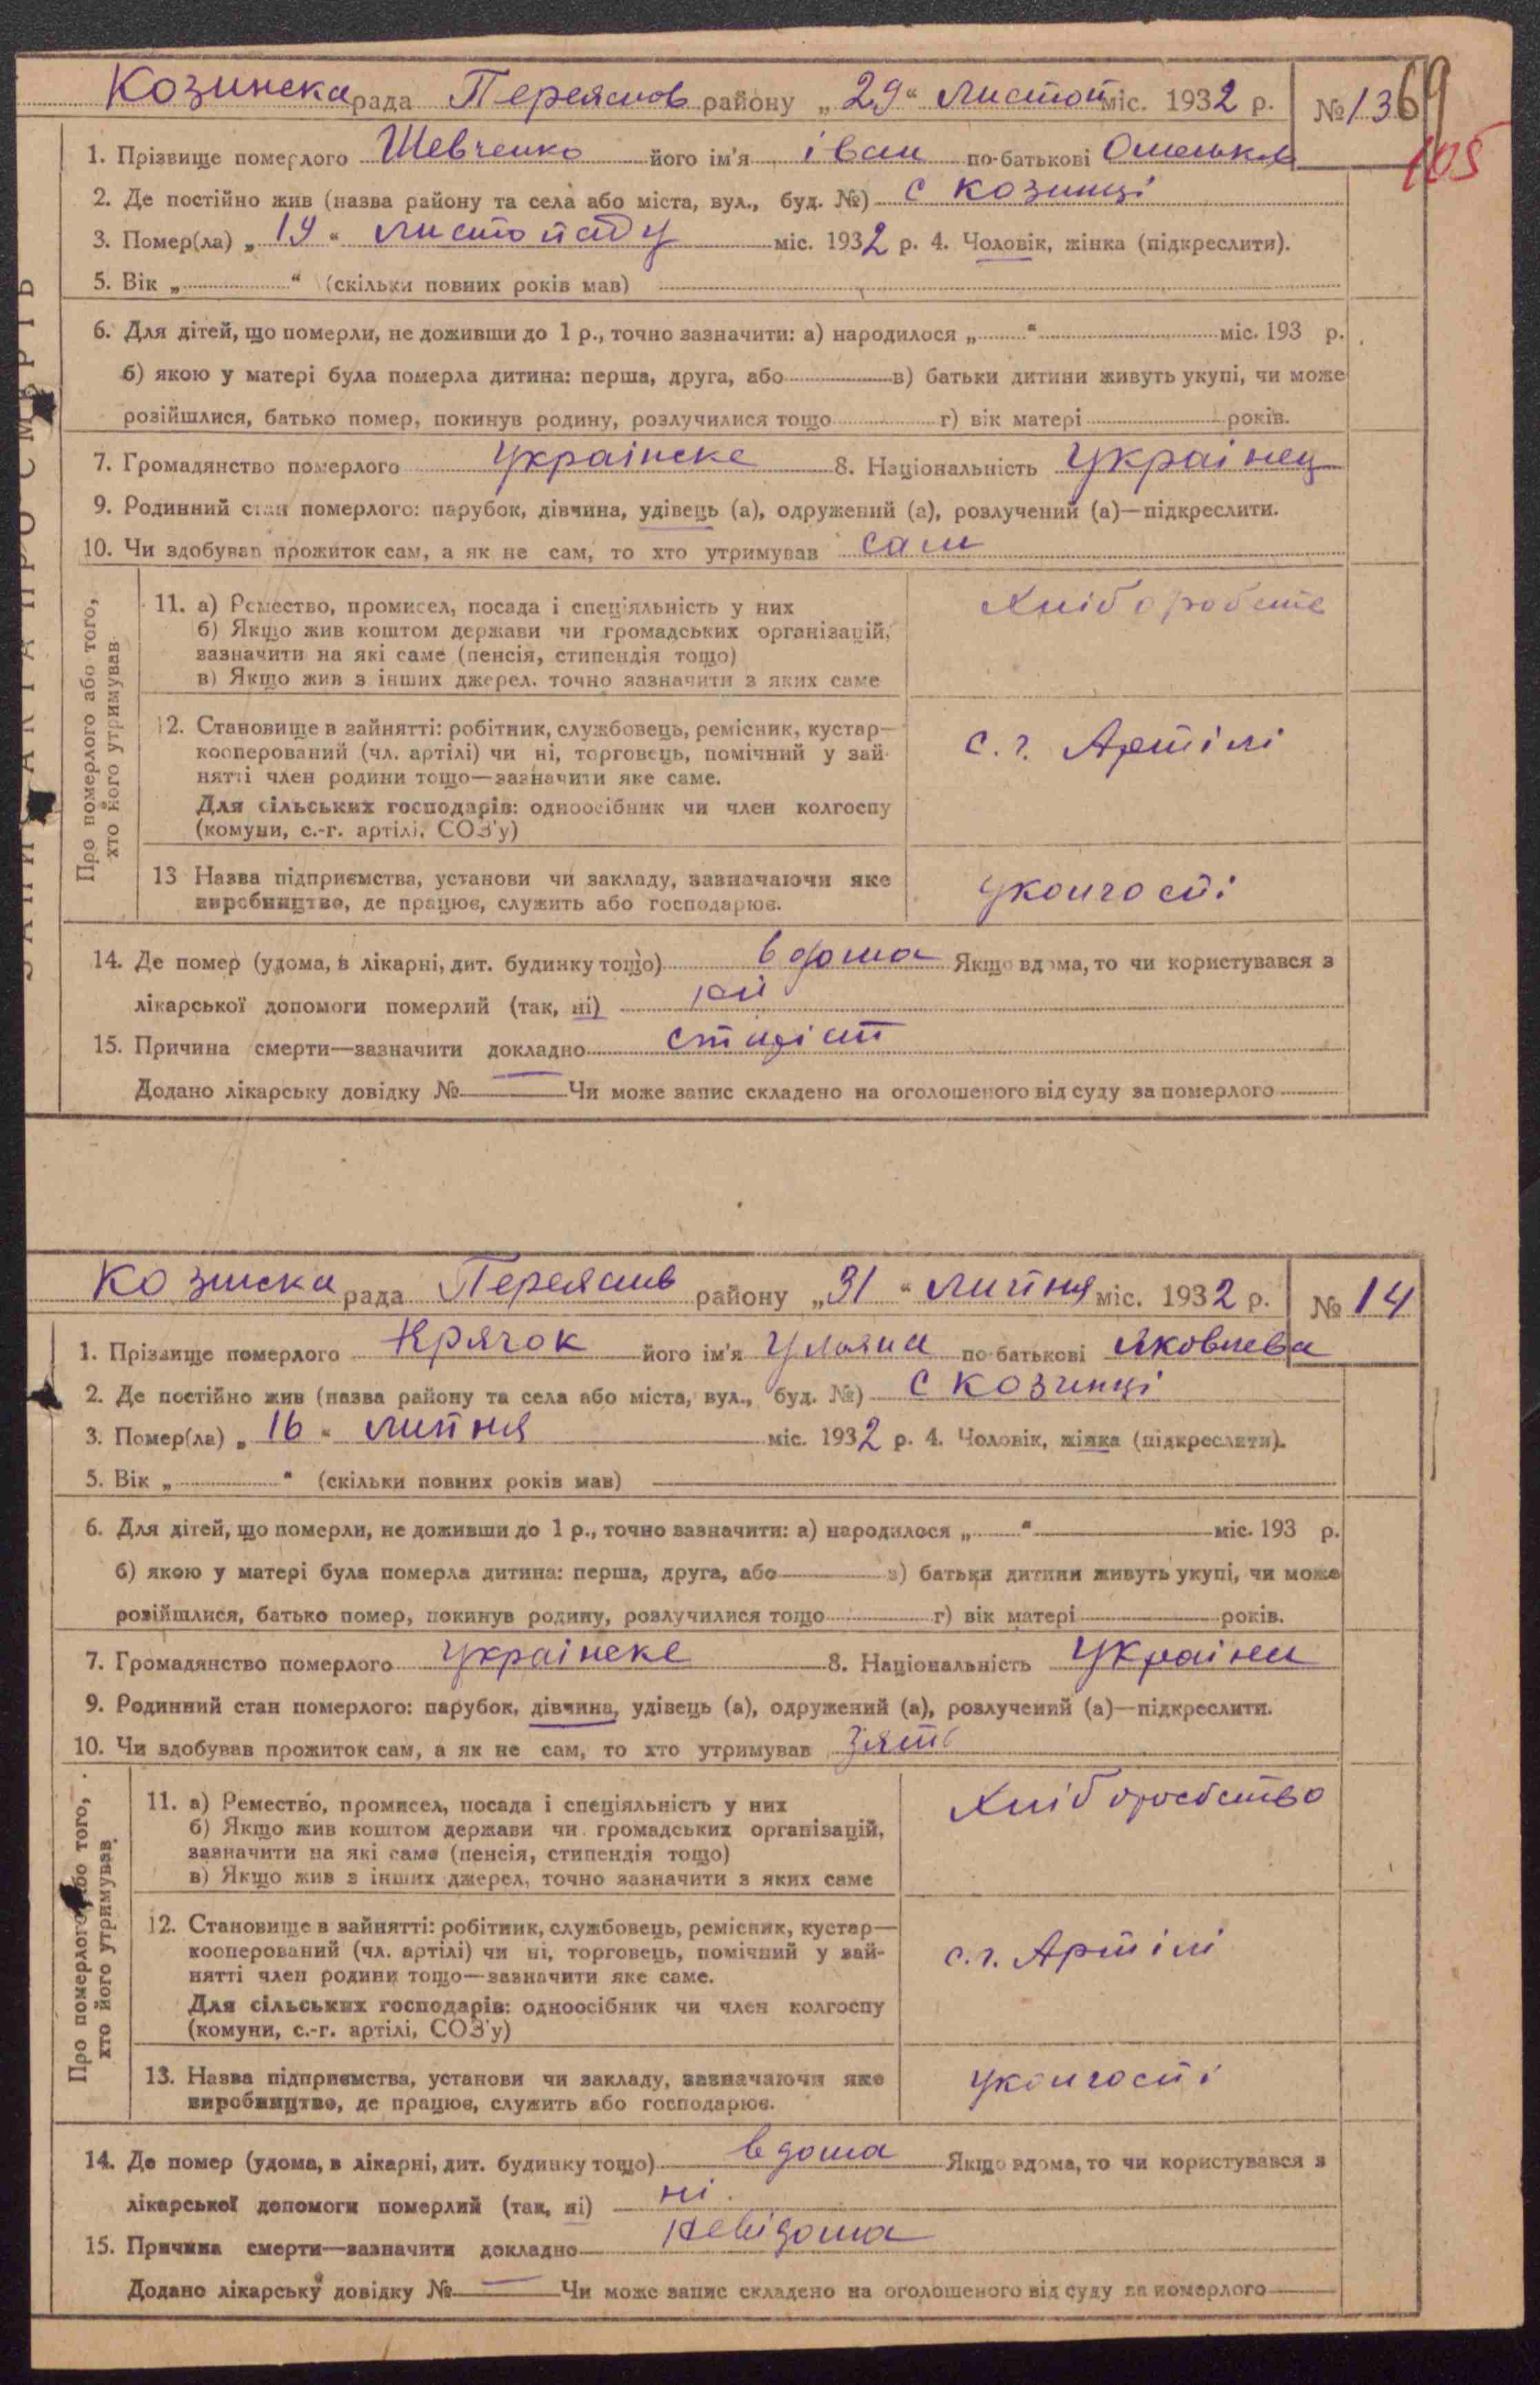 Козинска рада Переяслов району „29“ листоп міс. 1932 р. № 13 69
105
1. Прізвище померлого Шевченко його ім'я іван по-батькові Омельков
2. Де постійно жив (назва району та села або міста, вул., буд. №) С козинці
3. Помер(ла) „19“ листопаду міс. 1932 р. 4. Чоловік, жінка (підкреслити).
5. Вік „ “ (скільки повних років мав)
6. Для дітей, що померли, не доживши до 1 р., точно зазначити: а) народилося „ “ міс. 193 р.
б) якою у матері була померла дитина: перша, друга, або в) батьки дитини живуть укупі, чи може
розійшлися, батько помер, покинув родину, розлучилися тощо г) вік матері років.
7. Громадянство померлого українске 8. Національність українец
9. Родинний стан померлого: парубок, дівчина, удівець (а), одружений (а), розлучений (а)—підкреслити.
10. Чи здобував прожиток сам, а як не сам, то хто утримував сам
Про померлого або того, хто його утримував
11. а) Ремество, промисел, посада і спеціяльність у них
б) Якщо жив коштом держави чи громадських організацій,
зазначити на які саме (пенсія, стипендія тощо)
в) Якщо жив з інших джерел, точно зазначити з яких саме
Хліборобств
12. Становище в зайнятті: робітник, службовець, ремісник, кустар—
кооперований (чл. артілі) чи ні, торговець, помічний у зай-
нятті член родини тощо—зазначити яке саме.
Для сільських господарів: одноосібник чи член колгоспу
(комуни, с.-г. артілі, СОЗ'у)
с. г. Артілі
13 Назва підприємства, установи чи закладу, зазначаючи яке
виробництво, де працює, служить або господарює.
уколгоспі
14. Де помер (удома, в лікарні, дит. будинку тощо) вдома Якщо вдома, то чи користувався з
лікарської допомоги померлий (так, ні) ні
15. Причина смерти—зазначити докладно
Додано лікарську довідку № — Чи може запис складено на оголошеного від суду за померлого
ЗАПИС АКТА ПРО СМЕРТЬ
Козинска рада Переяслів району „31“ липня міс. 1932 р. № 14
1. Прізвище померлого Крячок його ім'я Уляна по-батькові Яковлева
2. Де постійно жив (назва району та села або міста, вул., буд. №) С козинці
3. Помер(ла) „16“ липня міс. 1932 р. 4. Чоловік, жінка (підкреслити).
5. Вік „ “ (скільки повних років мав)
6. Для дітей, що померли, не доживши до 1 р., точно зазначити: а) народилося „ “ міс. 193 р.
б) якою у матері була померла дитина: перша, друга, або в) батьки дитини живуть укупі, чи може
розійшлися, батько помер, покинув родину, розлучилися тощо г) вік матері років.
7. Громадянство померлого українске 8. Національність україн
9. Родинний стан померлого: парубок, дівчина, удівець (а), одружений (а), розлучений (а)—підкреслити.
10. Чи здобував прожиток сам, а як не сам, то хто утримував Зять
Про померлого або того, хто його утримував.
11. а) Ремество, промисел, посада і спеціяльність у них
б) Якщо жив коштом держави чи громадських організацій,
зазначити на які саме (пенсія, стипендія тощо)
в) Якщо жив з інших джерел, точно зазначити з яких саме
Хліборобство
12. Становище в зайнятті: робітник, службовець, ремісник, кустар—
кооперований (чл. артілі) чи ні, торговець, помічний у зай-
нятті член родини тощо—зазначити яке саме.
Для сільських господарів: одноосібник чи член колгоспу
(комуни, с.-г. артілі, СОЗ'у)
с. г. Артілі
13. Назва підприємства, установи чи закладу, зазначаючи яке
виробництво, де працює, служить або господарює.
уколгоспі
14. Де помер (удома, в лікарні, дит. будинку тощо) вдома Якщо вдома, то чи користувався з
лікарської допомоги померлий (так, ні) ні.
15. Причина смерти—зазначити докладно невідома
Додано лікарську довідку № — Чи може запис складено на оголошеного від суду за померлого